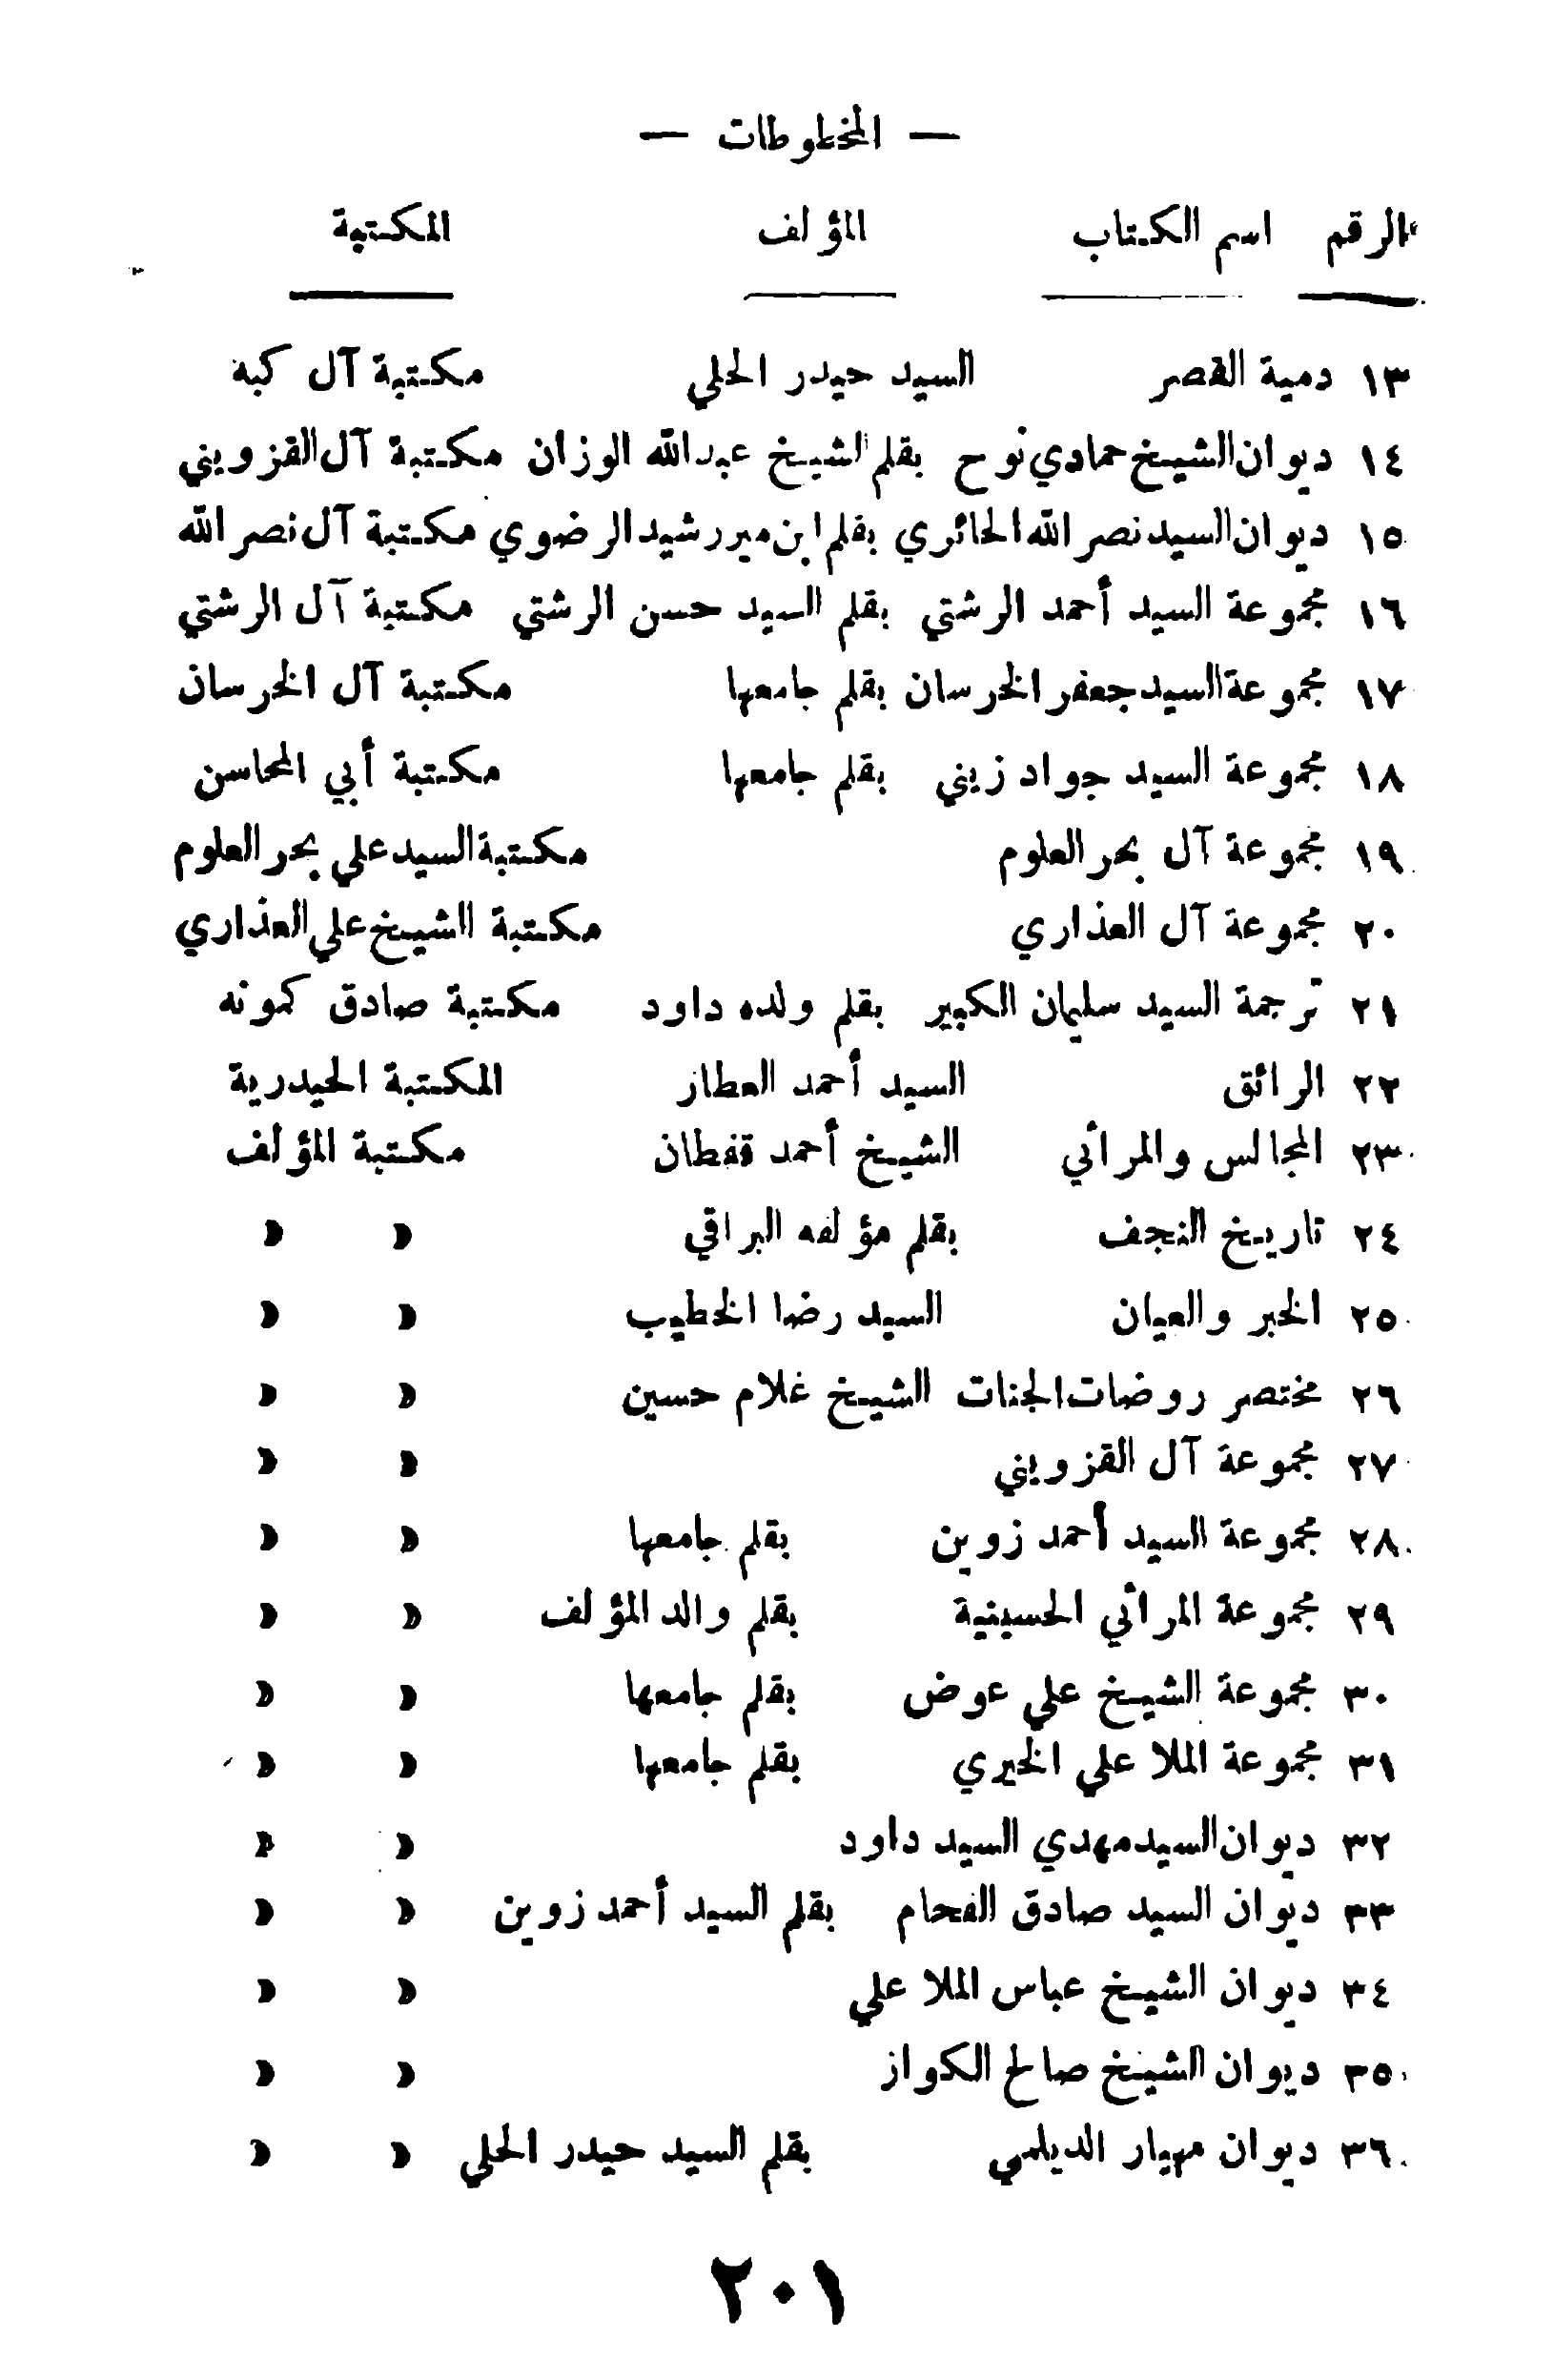 — المخطوطات —
الرقم اسم الكتاب المؤلف المكتبة
١٣ دمية القصر السيد حيدر الحلي مكتبة آل كبه
١٤ ديوان الشيخ حمادي نوح بقلم الشيخ عبد الله الوزان مكتبة آل القزويني
١٥ ديوان السيد نصر الله الحائري بقلم ابن مير رشيد الرضوي مكتبة آل نصر الله
١٦ مجموعة السيد أحمد الرشتي بقلم السيد حسن الرشتي مكتبة آل الرشتي
١٧ مجموعة السيد جعفر الخرسان بقلم جامعها مكتبة آل الخرسان
١٨ مجموعة السيد جواد زيني بقلم جامعها مكتبة أبي المحاسن
١٩ مجموعة آل بحر العلوم مكتبة السيد علي بحر العلوم
٢٠ مجموعة آل العذاري مكتبة الشيخ علي العذاري
٢١ ترجمة السيد سليمان الكبير بقلم ولده داود مكتبة صادق كمونه
٢٢ الرائق السيد أحمد العطار المكتبة الحيدرية
٢٣ المجالس والمراثي الشيخ أحمد قفطان مكتبة المؤلف
٢٤ تاريخ النجف بقلم مؤلفه البراقي » »
٢٥ الخبر والعيان السيد رضا الخطيب » »
٢٦ مختصر روضات الجنات الشيخ غلام حسين » »
٢٧ مجموعة آل القزويني » »
٢٨ مجموعة السيد أحمد زوين بقلم جامعها » »
٢٩ مجموعة المراثي الحسينية بقلم والد المؤلف » »
٣٠ مجموعة الشيخ علي عوض بقلم جامعها » »
٣١ مجموعة الملا علي الخيري بقلم جامعها » »
٣٢ ديوان السيد مهدي السيد داود » »
٣٣ ديوان السيد صادق الفحام بقلم السيد أحمد زوين » »
٣٤ ديوان الشيخ عباس الملا علي » »
٣٥ ديوان الشيخ صالح الكواز » »
٣٦ ديوان مهيار الديلمي بقلم السيد حيدر الحلي » »
٢٠١